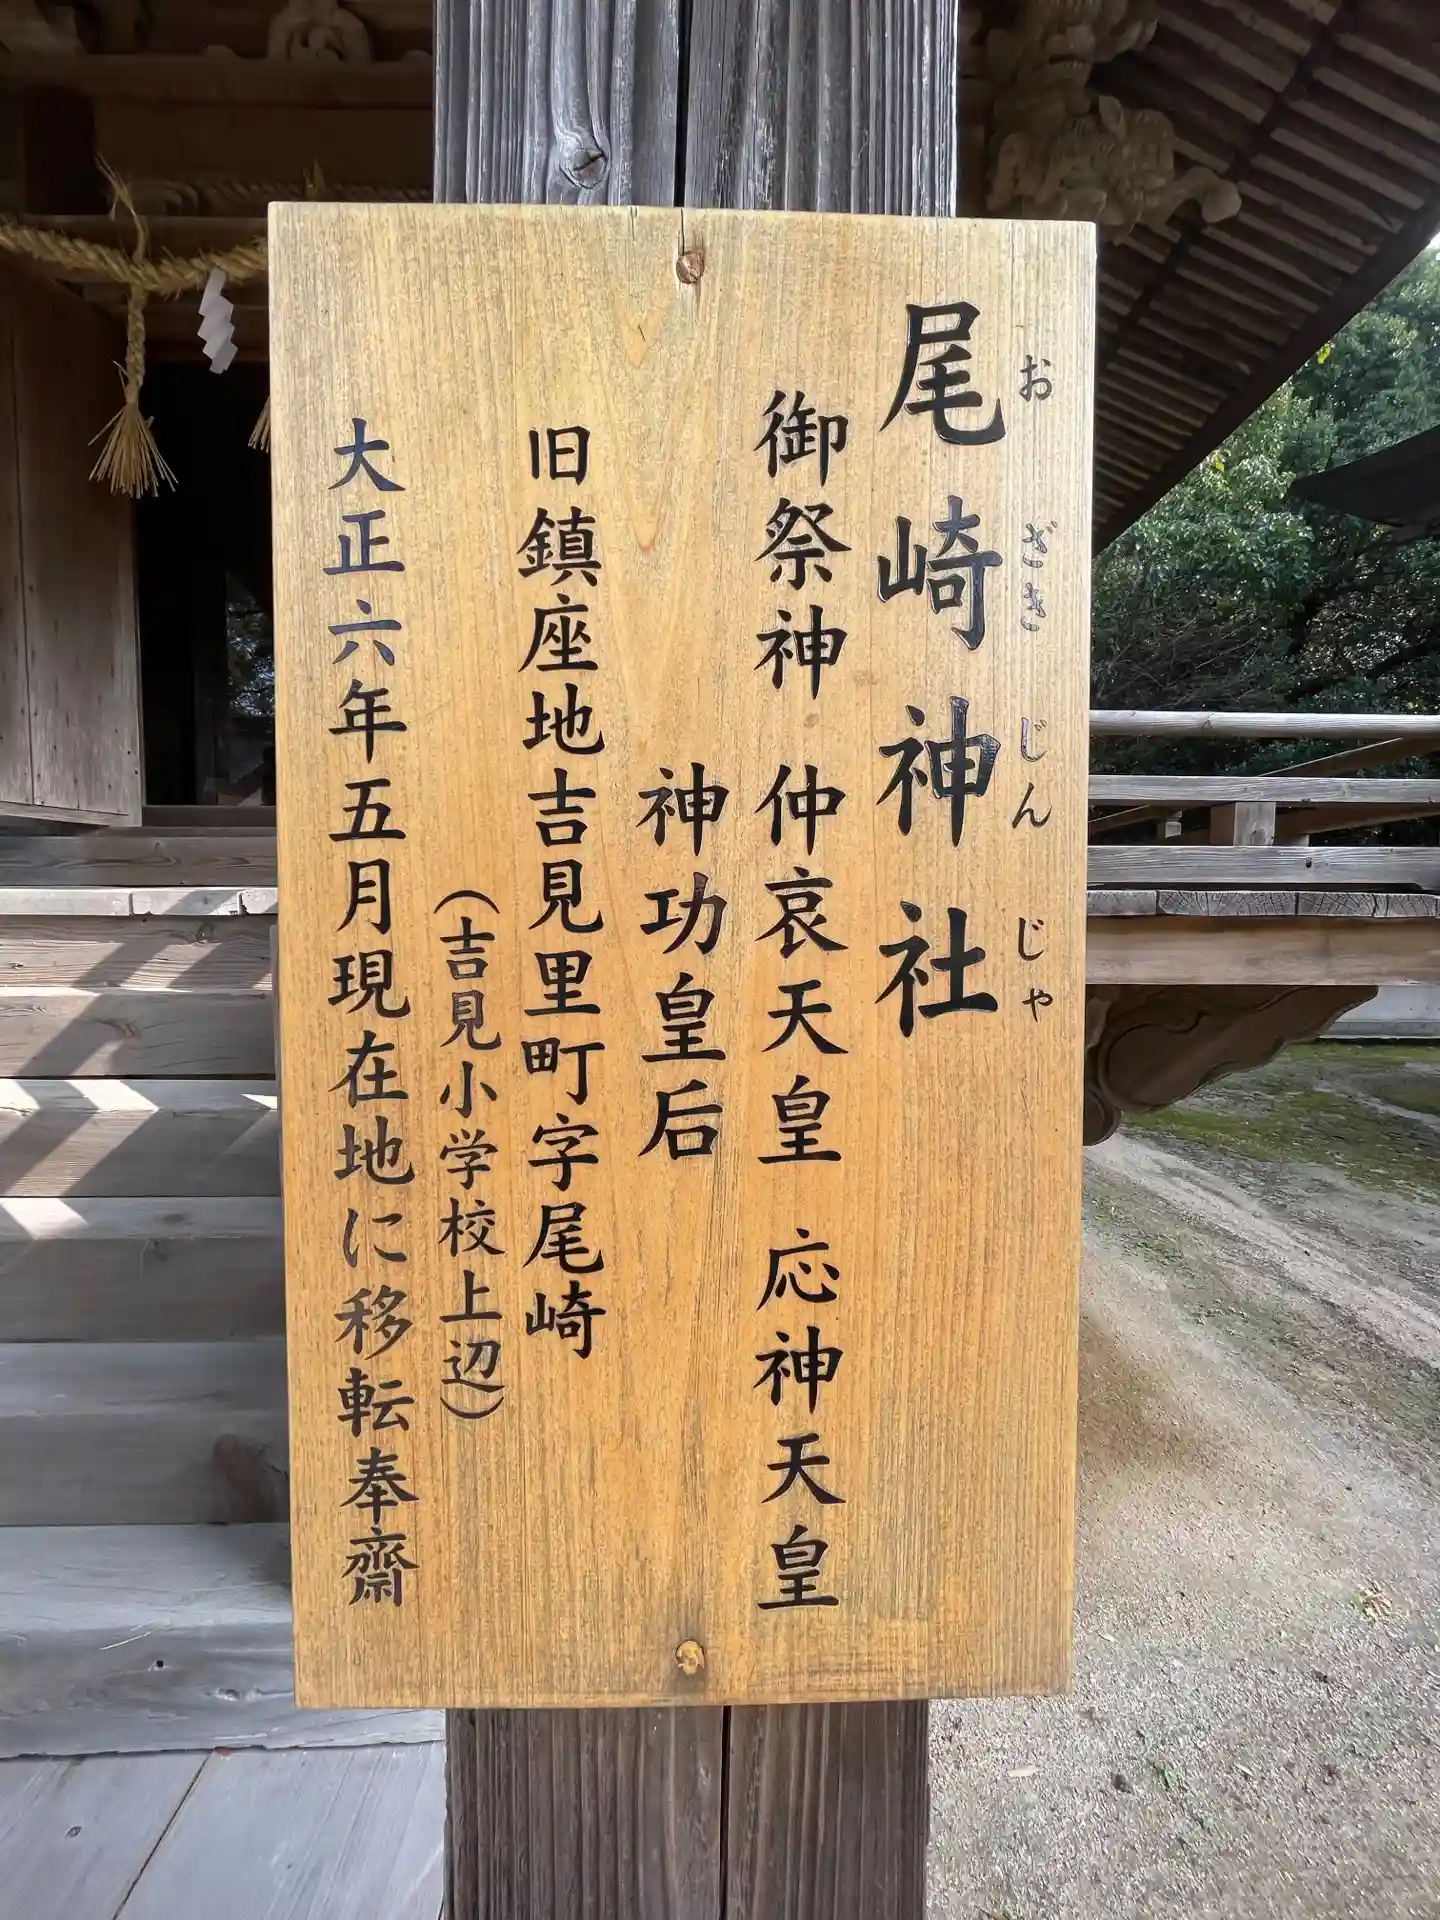 尾崎神社
おざきじんじゃ
御祭神 仲哀天皇 応神天皇
神功皇后
旧鎮座地吉見里町字尾崎
（吉見小学校上辺）
大正六年五月現在地に移転奉齋